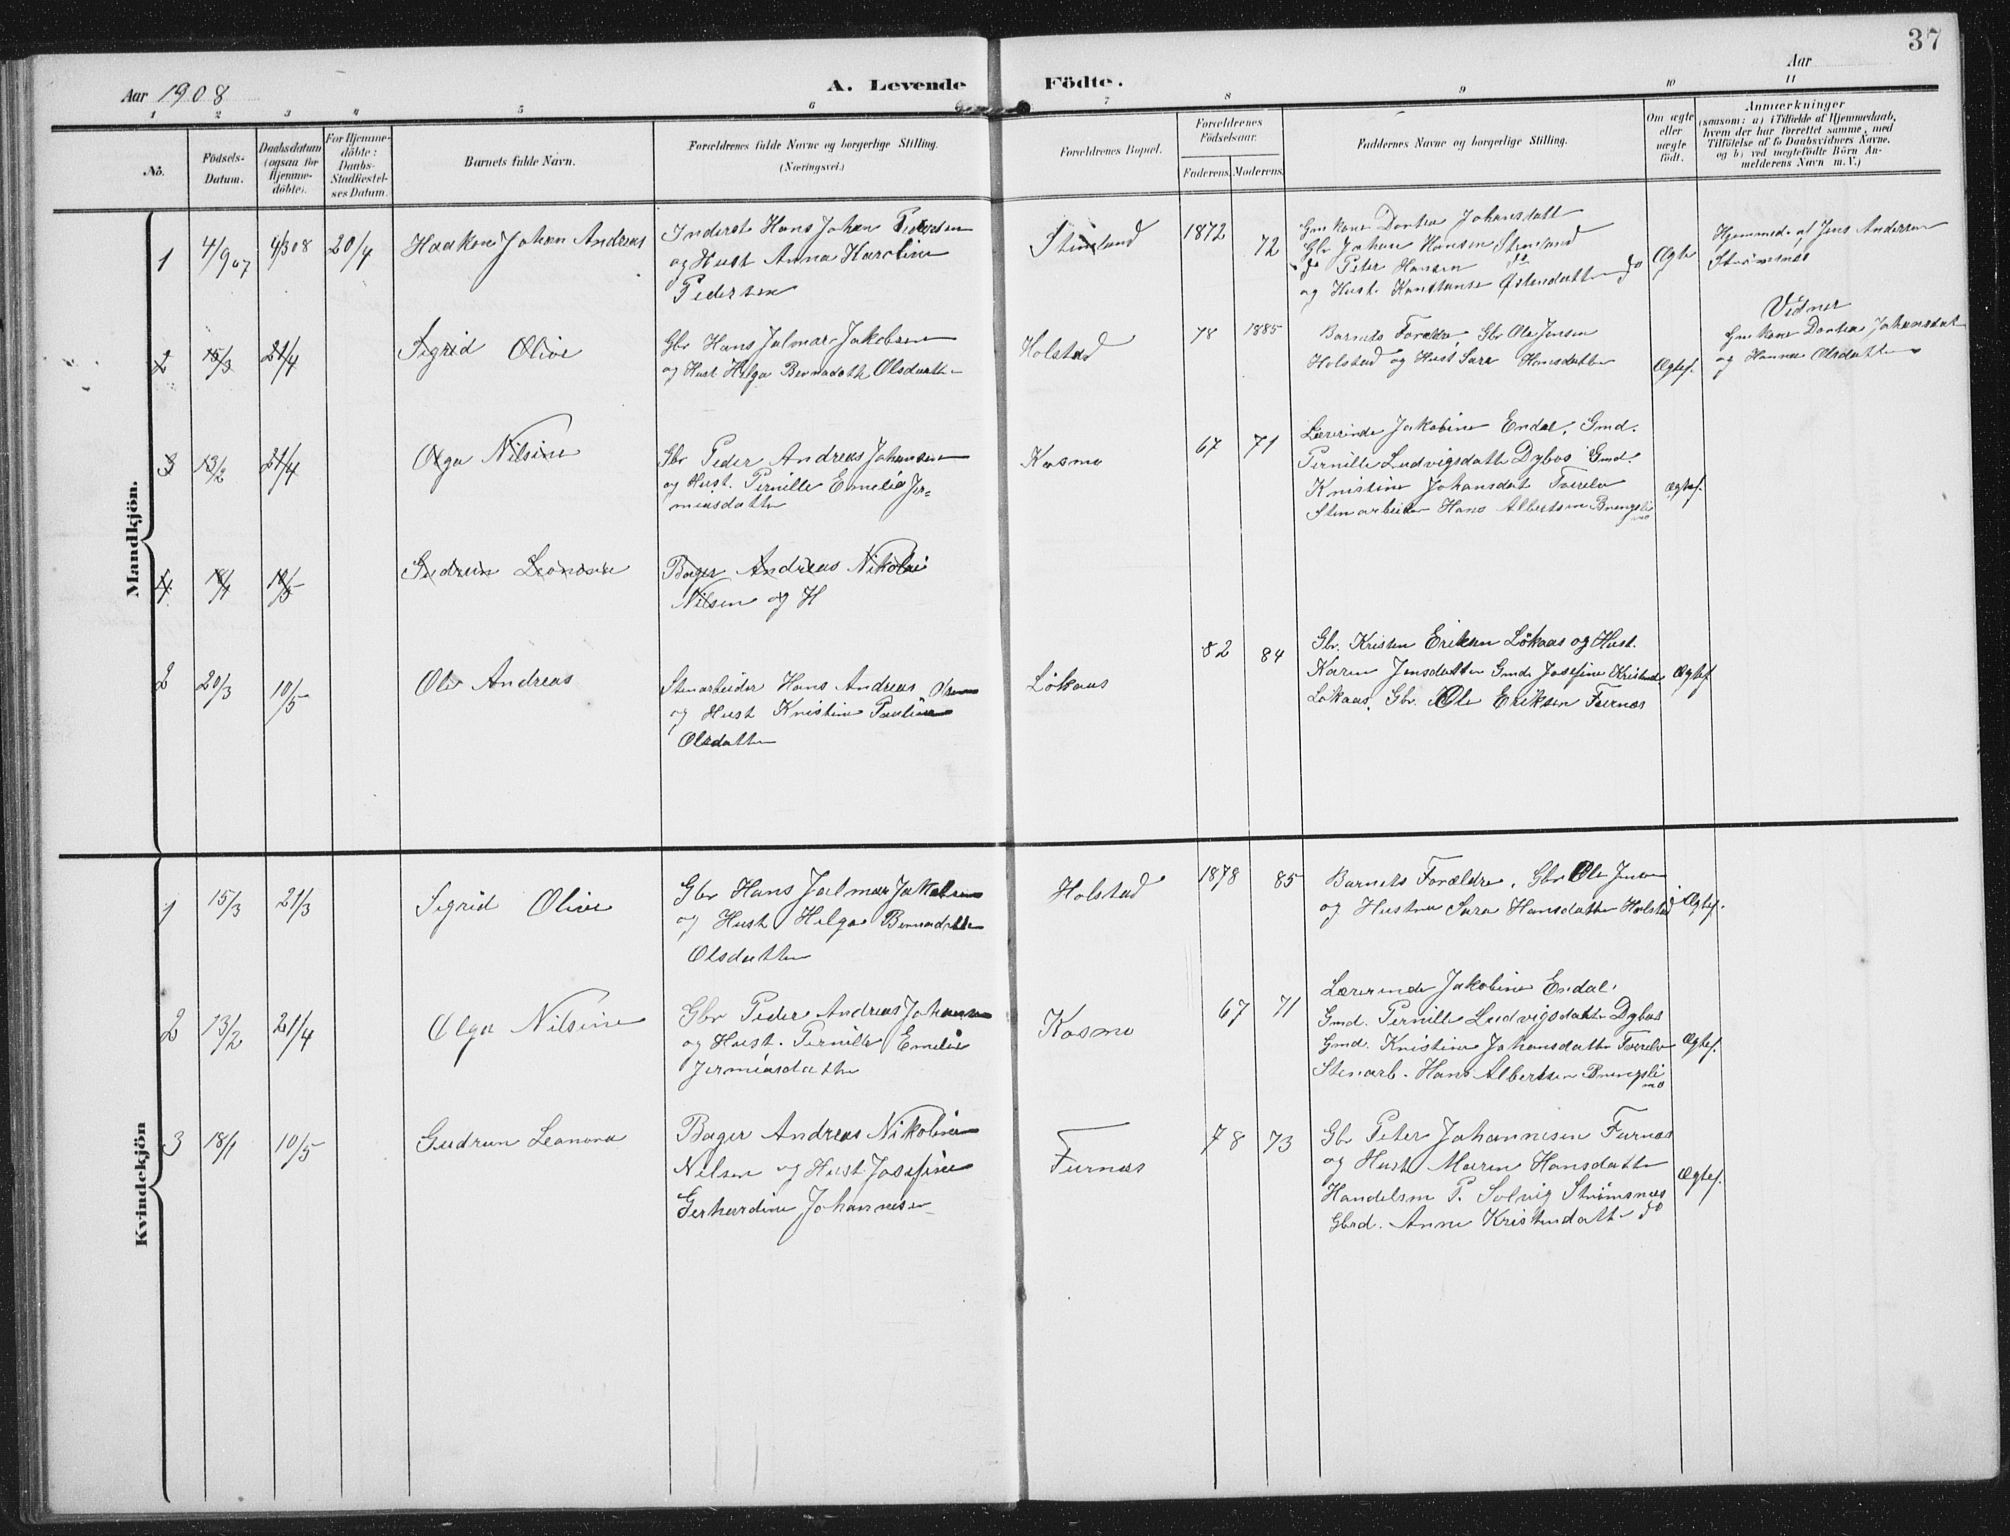 37
Aar 1908
A. Levende Födte.
Aar
1 2 3 4 5 6 7 8 9 10 11
No.
Födsels-
Datum.
Daabsdatum
(ogsaa for
Hjemme-
döbte).
For Hjemme-
döbte:
Daabs-
Stadfæstel-
ses Datum.
Barnets fulde Navn.
Forældrenes fulde Navne og borgerlige Stilling.
(Næringsvei.)
Forældrenes Bopæl.
Forældrenes
Födselsaar.
Faderens. Moderens.
Faddernes Navne og borgerlige Stilling.
Om ægte
eller
uægte
født.
Anmærkninger
(saasom: a) i Tilfælde af Hjemmedaab,
hvem der har forrettet samme, med
Tilföielse af to Daabsvidners Navne,
og b) ved uægtefödte Börn An-
melderens Navn m. V.)
Mandkjön.
1 4/9 07 4/3 08 20/4 Haakon Johan Andreas
Inderst Hans Johan Pedersen
og Hust Anna Karoline
Pedersen
1872 72
Gmkone Dortea Johansdatt
Gbr Johan Hansen Stenland
do Peter Hansen do
og Hust. Konstanse Østensdatter do
Ægte
Hjemmed. af Jens Andersen
Strømsnes
Vidner
Gmkone Dortea Johansdat
og Hanna Olsdatter
2 15/3 21/4 Sigrid Olive
Gbr Hans Jalmar Jakobsen
og Hust Helga Bernadotte Olsdatter
Holstad
78 1885
Barnets Forældre, Gbr Ole Jensen
Holstad og Hust Sara Hansdatter
Ægtef.
3 13/2 21/4 Olga Nilsine
Gbr Peder Andreas Johansen
og Hust. Pernille Emelie Jer-
miasdatter
Kosmo
67 71
Lærerinde Jakobine Endal, Gmd.
Pernille Ludvigsdatter Dybos Gmd.
Kristine Johansdat Tverelv
Stenarbeider Hans Albertsen Brengsli
mo
Ægtef.
4 18/1 10/5 Gudrun Leonora
Bager Andreas Nikolai
Nilsen og H
2 20/3 10/5 Ole Andreas
Stenarbeider Hans Andreas Olsen
og Hust Kristine Pauline
Olsdatter
Løkaas
82 84
Gbr. Kristen Eriksen Løkaas og Hust.
Karen Jensdatter Gmd. Josefine Kristensd
Løkaas, Gbr. Ole Eriksen Furnes
Ægtef
Kvindekjön
1 15/3 21/3 Sigrid Olive
Gbr Hans Jalmar Jakobsen
og Hust Helga Bernadotte
Olsdatter
Holstad
1878 85
Barnets Forældre, Gbr Ole Jensen
og Hustru Sara Hansdatter Holstad
Ægtef.
2 13/2 21/4 Olga Nilsine
Gbr Peder Andreas Johansen
og Hust. Pernille Emelie
Jermiasdatter
Kosmo
67 71
Lærerinde Jakobine Endal,
Gmd. Pernille Ludvigsdatter Dybos
Gmd. Kristine Johansdatter Tverelv
Stenarb. Hans Albertsen Brengsli
mo
Ægtef.
3 18/1 10/5 Gudrun Leonora
Bager Andreas Nikolai
Nilsen og Hust Josefine
Gerhardine Johannesen
Furnes
78 73
Gbr Peter Johannesen Furnes
og Hust Maren Hansdatter
Handelsm P. Solvig Strømsnes
Gbrd. Anne Kristensdatter do
Ægtef.